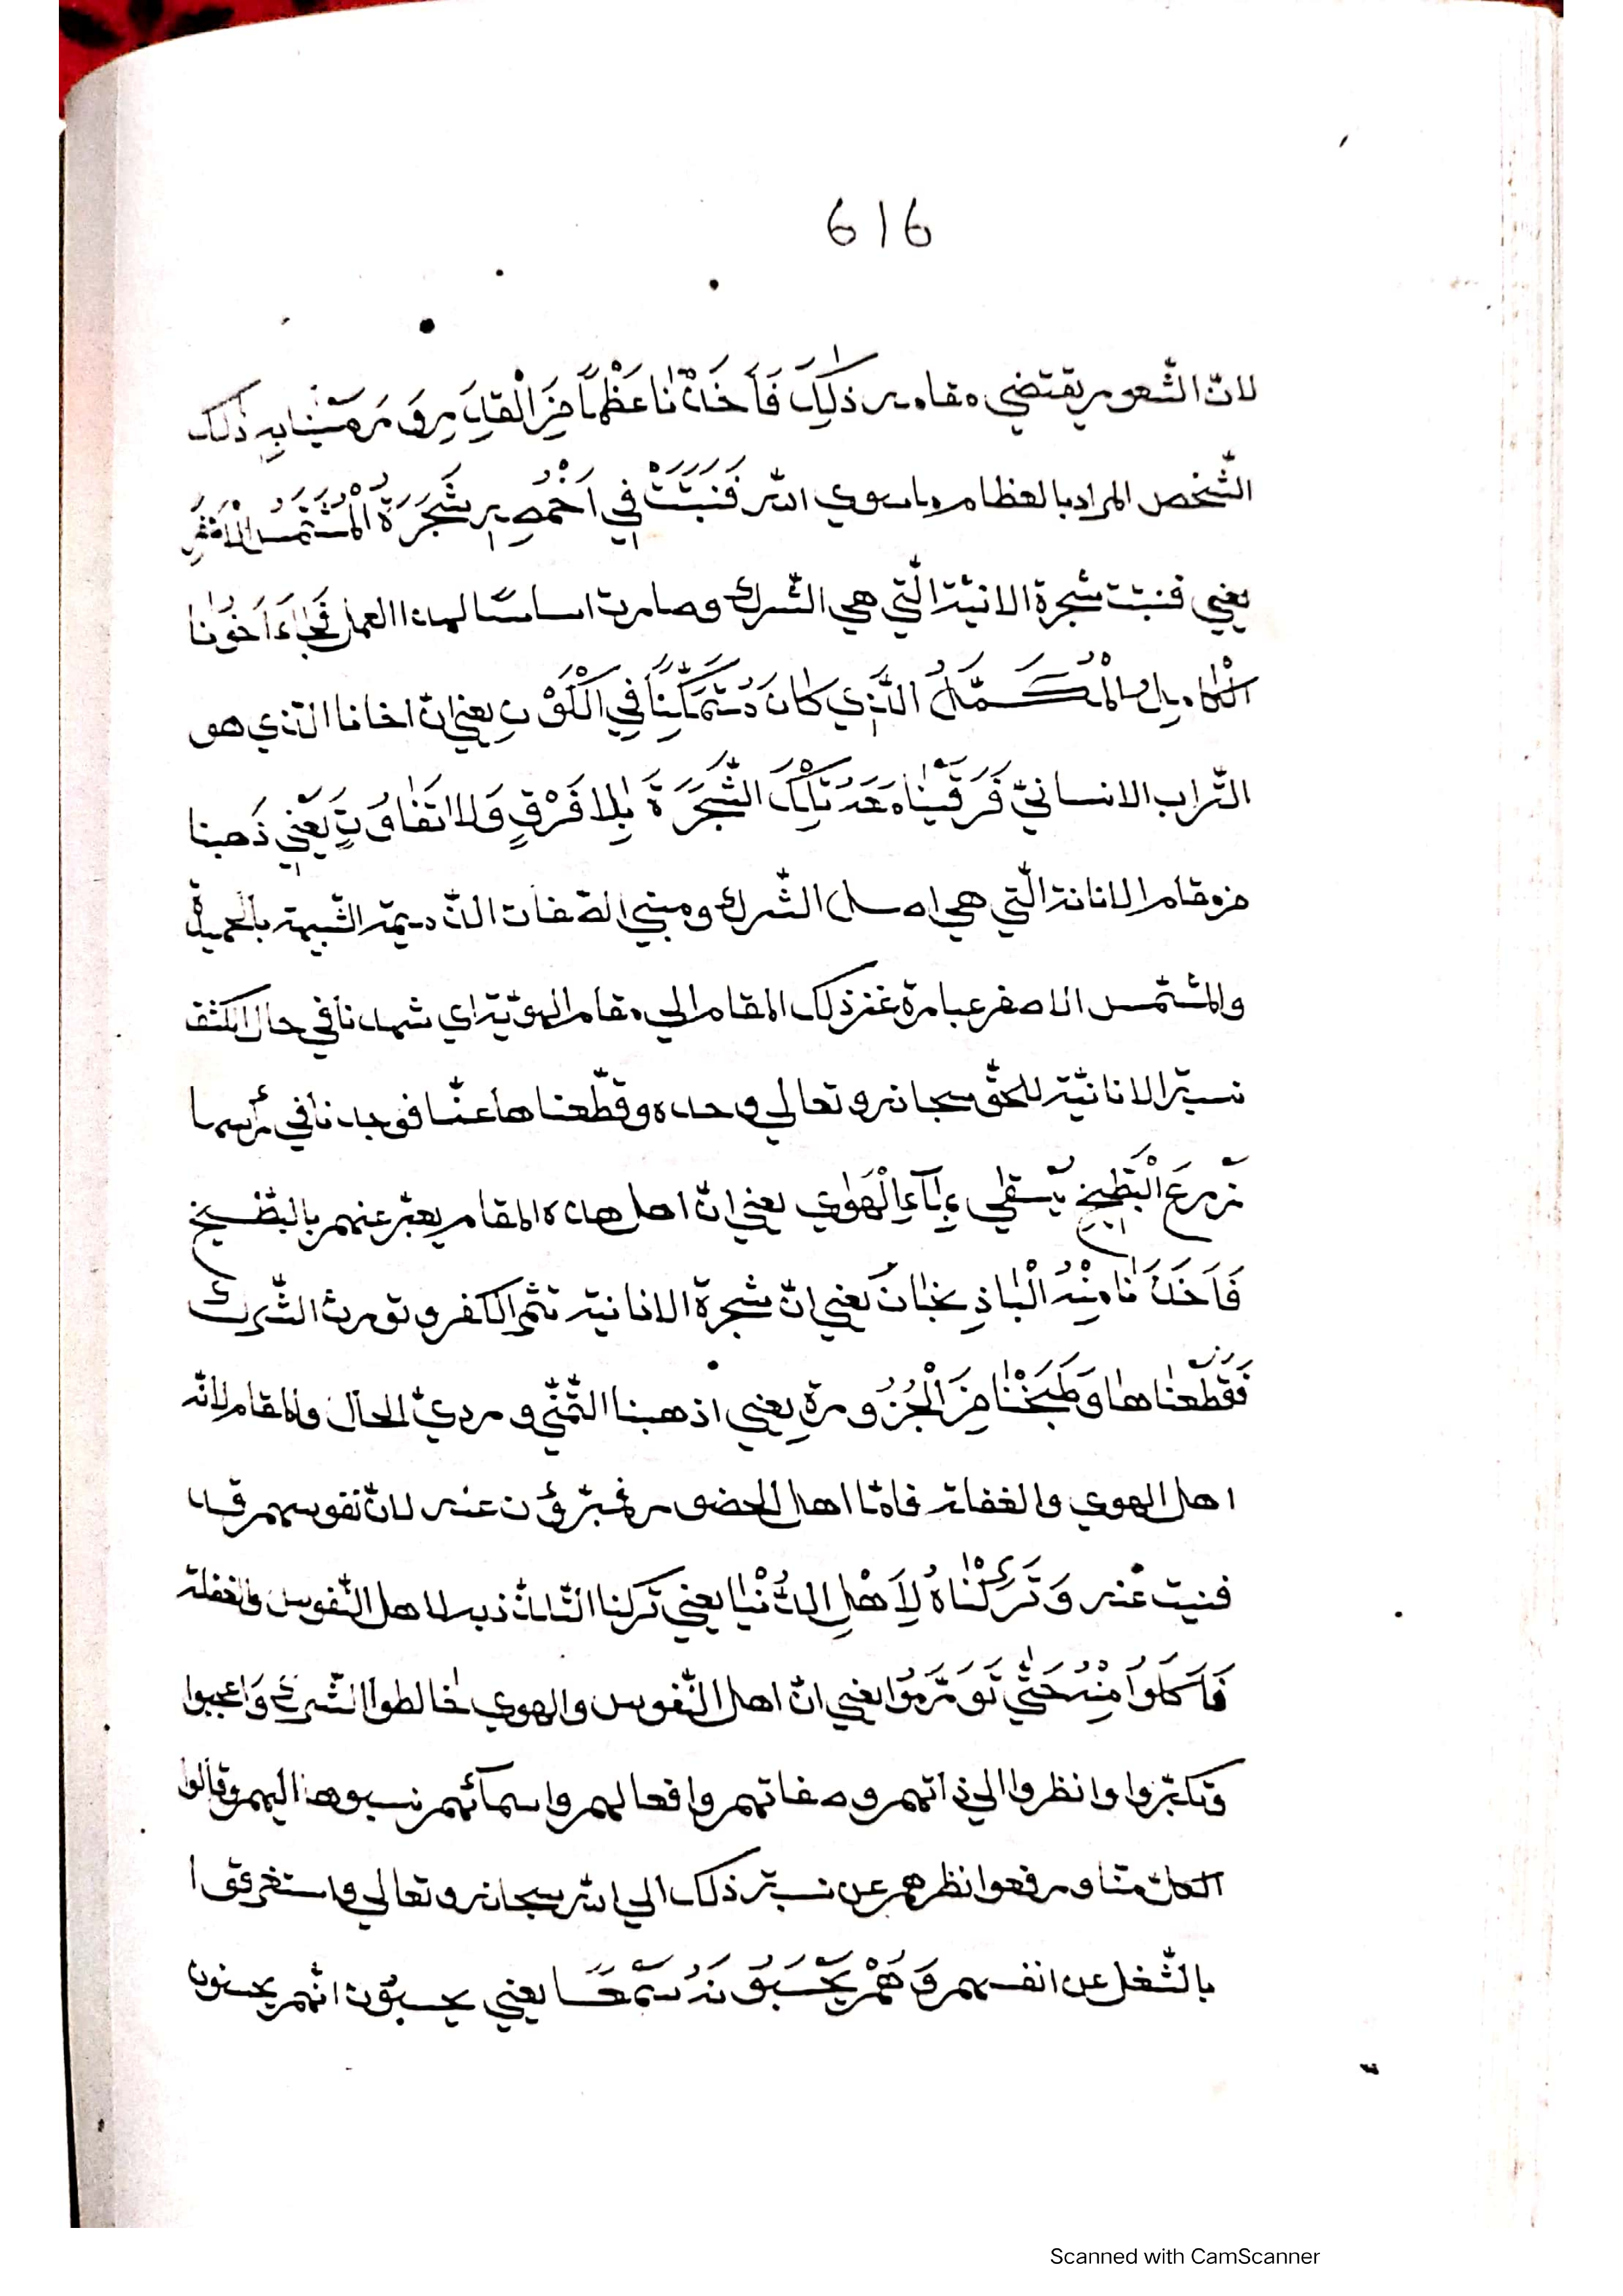 616
لانّ الشّعور يقتضي مقامه ذٰلِكَ فَاَخَذْنَا عَظْمًا مِنَ الْقِدْرِ وَرَمَيْنَا بِهِ ذٰلِكَ
الشّخص المراد بالعظام ما سوي الله فَنَبَتَتْ فِي اَخْمُصِهِ شَجَرَةُ الْمُشْمُسِ الْاَصْفَرِ
يعني فنبتت شجرة الانيّة الّتي هي الشّرك وصارت اساسًا لهذا العمل فَجَاءَ اَخُونَا
الْكَامِلُ الْمُكَمَّلُ الَّذِي كَانَ مُتَمَكِّنًا فِي الْكَوْنِ يعني انّ اخانا الّذي هو
التّراب الانسانيّ فَرَقَيْنَا مَعَهُ تِلْكَ الشَّجَرَةَ بِلَا فَرْقٍ وَلَا تَفَاوُتٍ يَعْنِي ذَهبنا
من مقام الانانة الّتي هي اصل الشّرك ومبني الصّفات الذّميمة الشّبيهة بالحميدة
والمشمس الاصفر عبارة عن ذلك المقام الي مقام الهويّة اي شهدنا في حال الكشف
نسبة الانانيّة للحقّ سبحانه وتعالي وحده وقطّعناها عنّا فوجدنا في رأسها
زَرْعَ الْبَطِّيخِ يُسْقٰى بِمَاءِ الْهَوٰي يعني انّ اهل هذه المقام يعبّر عنهم بالبطّيخ
فَاَخَذْنَا مِنْهُ الْبَاذِنْجَانَ يعني انّ شجرة الانانية تثمر الكفر وتورث الشّرك
فَقَطَّعْنَاهَا وَطَبَخْنَا مِنَ الْجُزُورَةِ يعني اذهبنا التّمنّي وردي الحال والمقام لانّه
اهل الهوي والغفلة فامّا اهل الحضور فمبرّؤن عنه لانّ نفوسهم قد
فنيت عنه وَتَرَكْنَاهُ لِاَهْلِ الدُّنْيَا يعني تركنا التّلذّذ به لاهل النّفوس والغفلة
فَاَكَلُوا مِنْهُ حَتّٰي تَوَرَّمُوا يعني انّ اهل النّفوس والهوي خالطوا الشّرك وَاعجبوا
وتكبّروا وانظروا الي ذاتهم وصفاتهم وافعالهم واسمآئهم نسبوها اليهم وقالوا
الكلّ منّا ورفعوا نظرهم عن نسبة ذلك الي الله سبحانه وتعالي واستغرقوا
بالشّغل عن انفسهم وَهُمْ يَحْسَبُونَهُ سَمْعًا يعني يحسبون انّهم يحسنون
Scanned with CamScanner